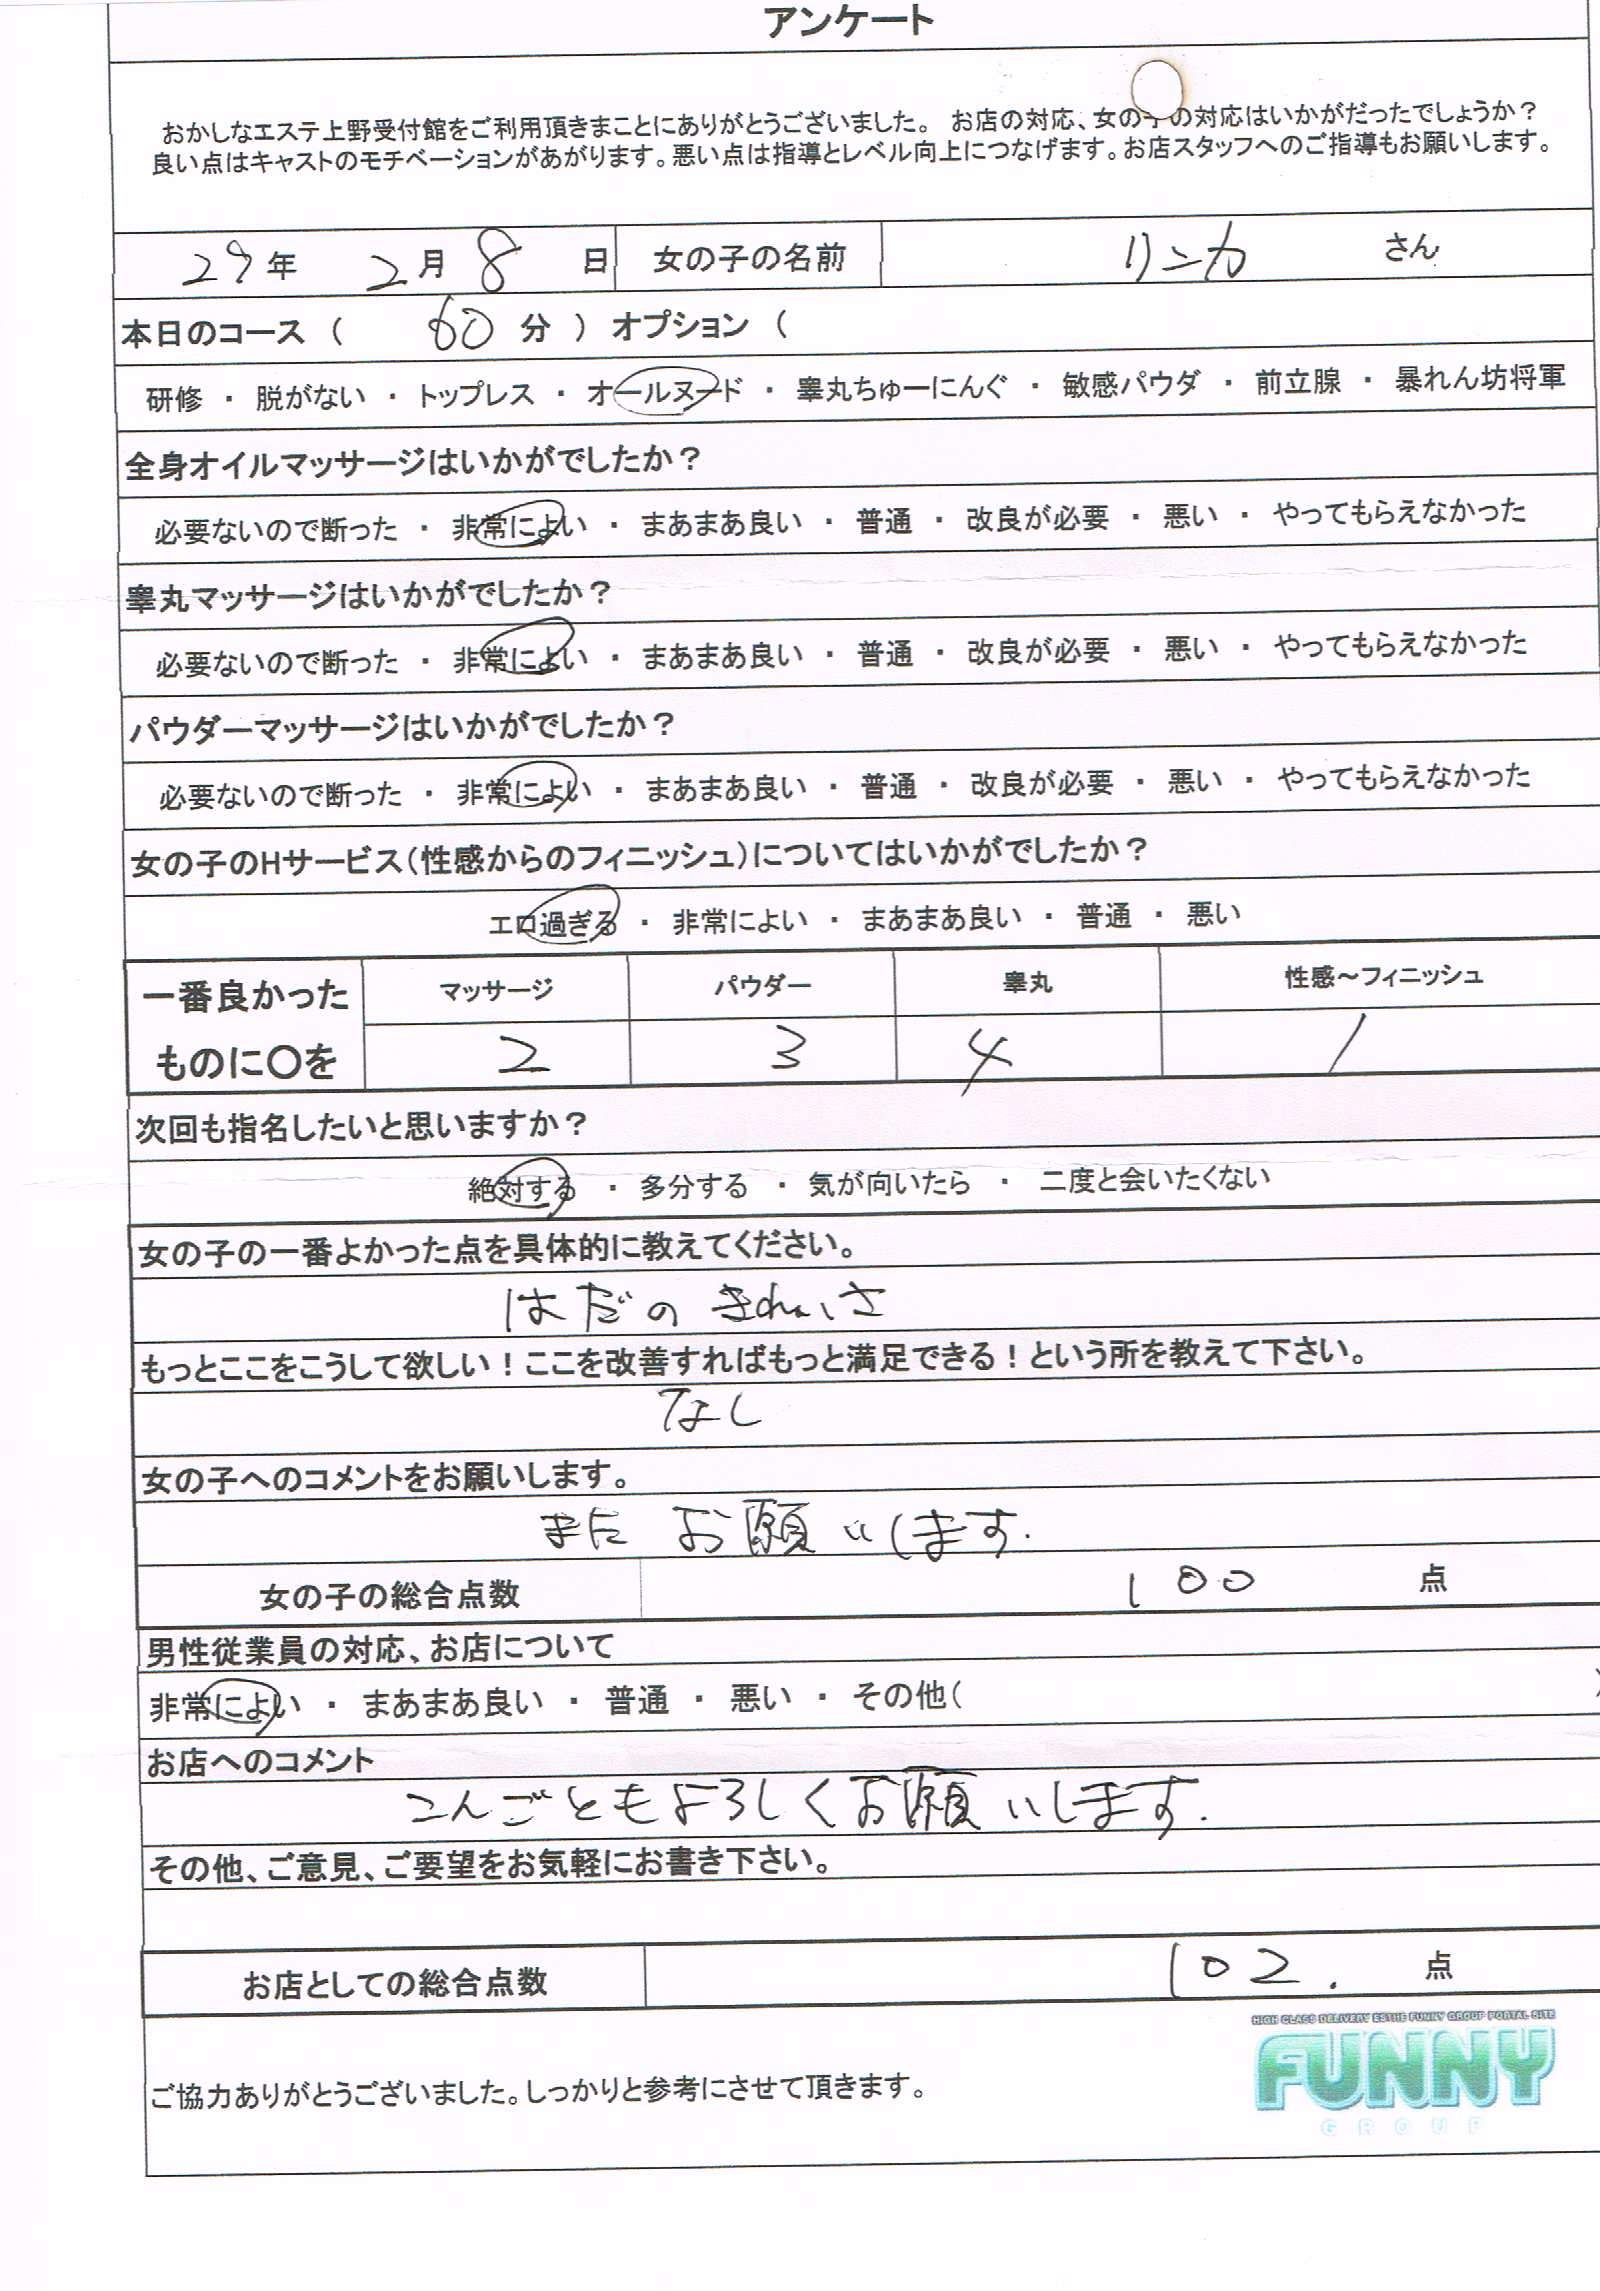 アンケート
おかしなエステ上野受付館をご利用頂きまことにありがとうございました。 お店の対応、女の子の対応はいかがだったでしょうか？
良い点はキャストのモチベーションがあがります。悪い点は指導とレベル向上につなげます。お店スタッフへのご指導もお願いします。
29 年 2 月 8 日 女の子の名前 リンカ さん
本日のコース （ 60 分 ） オプション （
研修 ・ 脱がない ・ トップレス ・ オールヌード ・ 睾丸ちゅーにんぐ ・ 敏感パウダ ・ 前立腺 ・ 暴れん坊将軍
全身オイルマッサージはいかがでしたか？
必要ないので断った ・ 非常によい ・ まあまあ良い ・ 普通 ・ 改良が必要 ・ 悪い ・ やってもらえなかった
睾丸マッサージはいかがでしたか？
必要ないので断った ・ 非常によい ・ まあまあ良い ・ 普通 ・ 改良が必要 ・ 悪い ・ やってもらえなかった
パウダーマッサージはいかがでしたか？
必要ないので断った ・ 非常によい ・ まあまあ良い ・ 普通 ・ 改良が必要 ・ 悪い ・ やってもらえなかった
女の子のHサービス（性感からのフィニッシュ）についてはいかがでしたか？
エロ過ぎる ・ 非常によい ・ まあまあ良い ・ 普通 ・ 悪い
一番良かった マッサージ パウダー 睾丸 性感～フィニッシュ
ものに〇を 2 3 4 1
次回も指名したいと思いますか？
絶対する ・ 多分する ・ 気が向いたら ・ 二度と会いたくない
女の子の一番よかった点を具体的に教えてください。
はだの きれいさ
もっとここをこうして欲しい！ここを改善すればもっと満足できる！という所を教えて下さい。
なし
女の子へのコメントをお願いします。
また お願いします.
女の子の総合点数 100 点
男性従業員の対応、お店について
非常によい ・ まあまあ良い ・ 普通 ・ 悪い ・ その他（ ）
お店へのコメント
こんごともよろしくお願いします.
その他、ご意見、ご要望をお気軽にお書き下さい。
お店としての総合点数 102. 点
HIGH CLASS DELIVERY ESTHE FUNNY GROUP PORTAL SITE
FUNNY
GROUP
ご協力ありがとうございました。しっかりと参考にさせて頂きます。